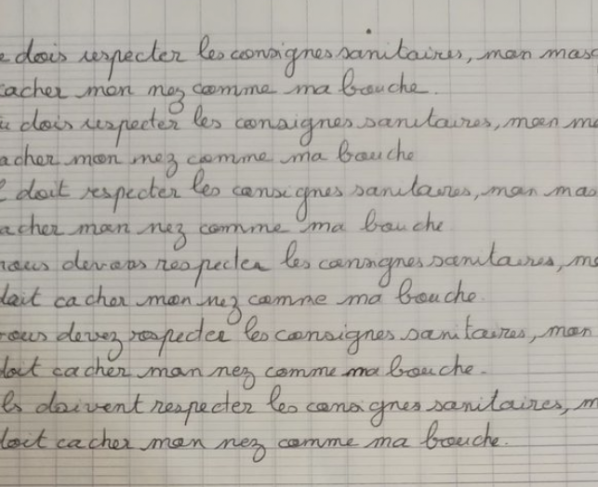 e dois respecter les consignes sanitaires, mon masq
cacher mon nez comme ma bouche.
u dois respecter les consignes sanitaires, mon ma
acher mon nez comme ma bouche
l doit respecter les consignes sanitaires, mon mas
acher mon nez comme ma bouche
nous devons respecter les consignes sanitaires, mo
doit cacher mon nez comme ma bouche.
vous devez respecter les consignes sanitaires, mon
doit cacher mon nez comme ma bouche.
ls doivent respecter les consignes sanitaires, m
doit cacher mon nez comme ma bouche.